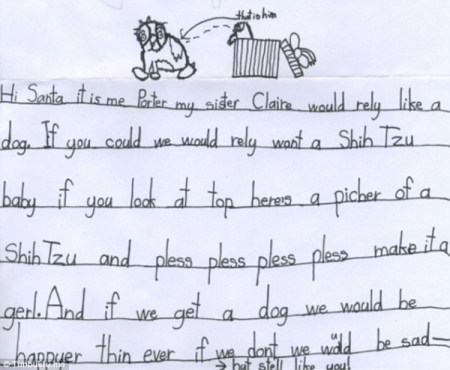 that is him
Hi Santa it is me Porter my sister Claire would rely like a
dog. If you could we would rely want a Shih Tzu
baby if you look at top here's a picher of a
Shih Tzu and pless pless pless pless make it a
gerl. And if we get a dog we would be
happyer thin ever if we dont we would be sad—
→ but stell like you!